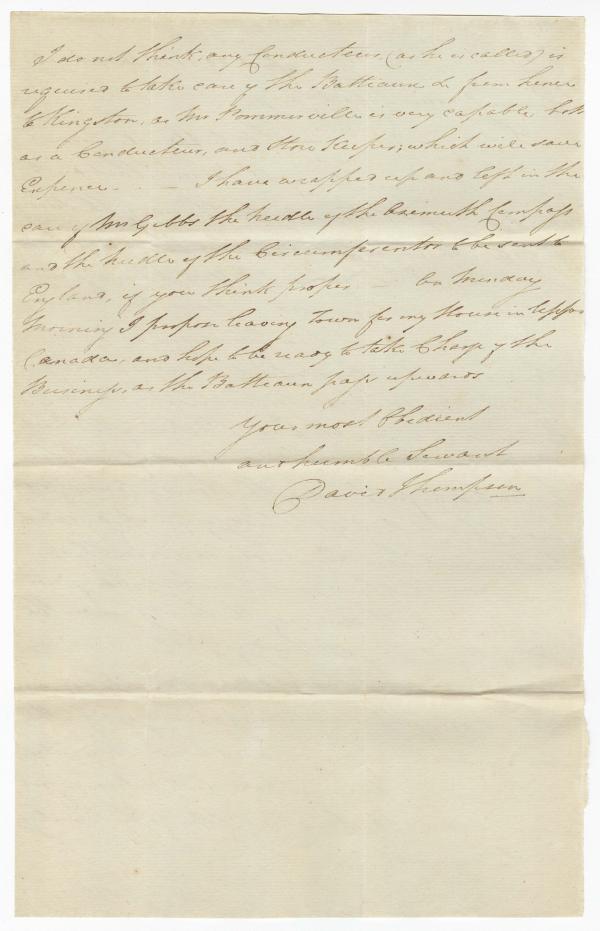 I do not think, any Conducteur (as he is called) is
required to take care of the Batteaux & from hence
to Kingston, as Mr Pommerville is very capable both
as a Conducteur, and Store Keeper; which will save
Expence. — I have wrapped up and left in the
care of Mr Gibbs the needle of the Azimuth Compass
and the needle of the Circumferentor to be sent to
England, if you think proper — On Monday
Morning I propose leaving Town for my House in Upper
Canada, and hope to be ready to take Charge of the
Business, as the Batteaux pass upwards
Your most Obedient
and humble Servant
David Thompson